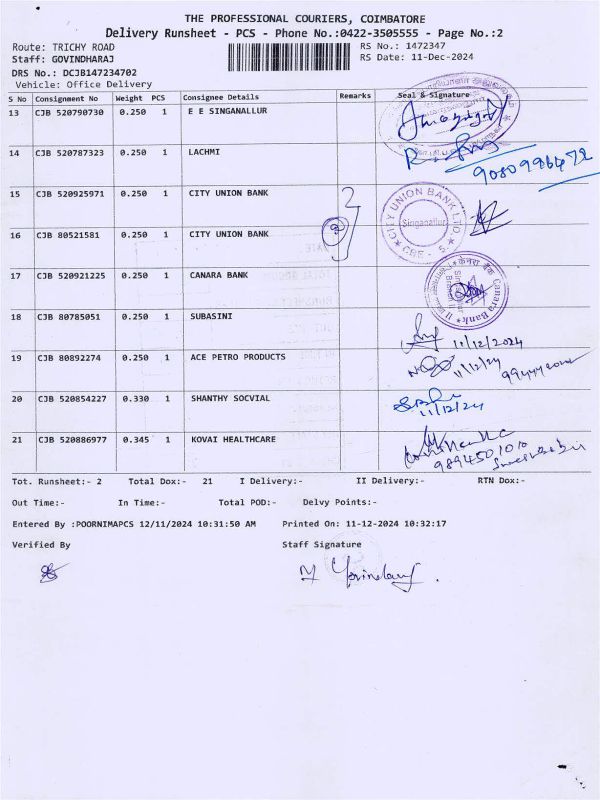 THE PROFESSIONAL COURIERS, COIMBATORE
Delivery Runsheet - PCS - Phone No.:0422-3505555 - Page No.:2
Route: TRICHY ROAD RS No.: 1472347
Staff: GOVINDHARAJ RS Date: 11-Dec-2024
DRS No.: DCJB147234702
Vehicle: Office Delivery
S No Consignment No Weight PCS Consignee Details Remarks Seal & Signature
13 CJB 520790730 0.250 1 E E SINGANALLUR
14 CJB 520787323 0.250 1 LACHMI
9080996472
15 CJB 520925971 0.250 1 CITY UNION BANK 2
CITY UNION BANK LTD.
Singanallur
CBE - 5
16 CJB 80521581 0.250 1 CITY UNION BANK
17 CJB 520921225 0.250 1 CANARA BANK
केनरा बैंक Canara Bank
18 CJB 80785051 0.250 1 SUBASINI
11/12/2024
19 CJB 80892274 0.250 1 ACE PETRO PRODUCTS
11/12/24
20 CJB 520854227 0.330 1 SHANTHY SOCVIAL
11/12/24
21 CJB 520886977 0.345 1 KOVAI HEALTHCARE
9894501010
Tot. Runsheet:- 2 Total Dox:- 21 I Delivery:- II Delivery:- RTN Dox:-
Out Time:- In Time:- Total POD:- Delvy Points:-
Entered By :POORNIMAPCS 12/11/2024 10:31:50 AM Printed On: 11-12-2024 10:32:17
Verified By Staff Signature